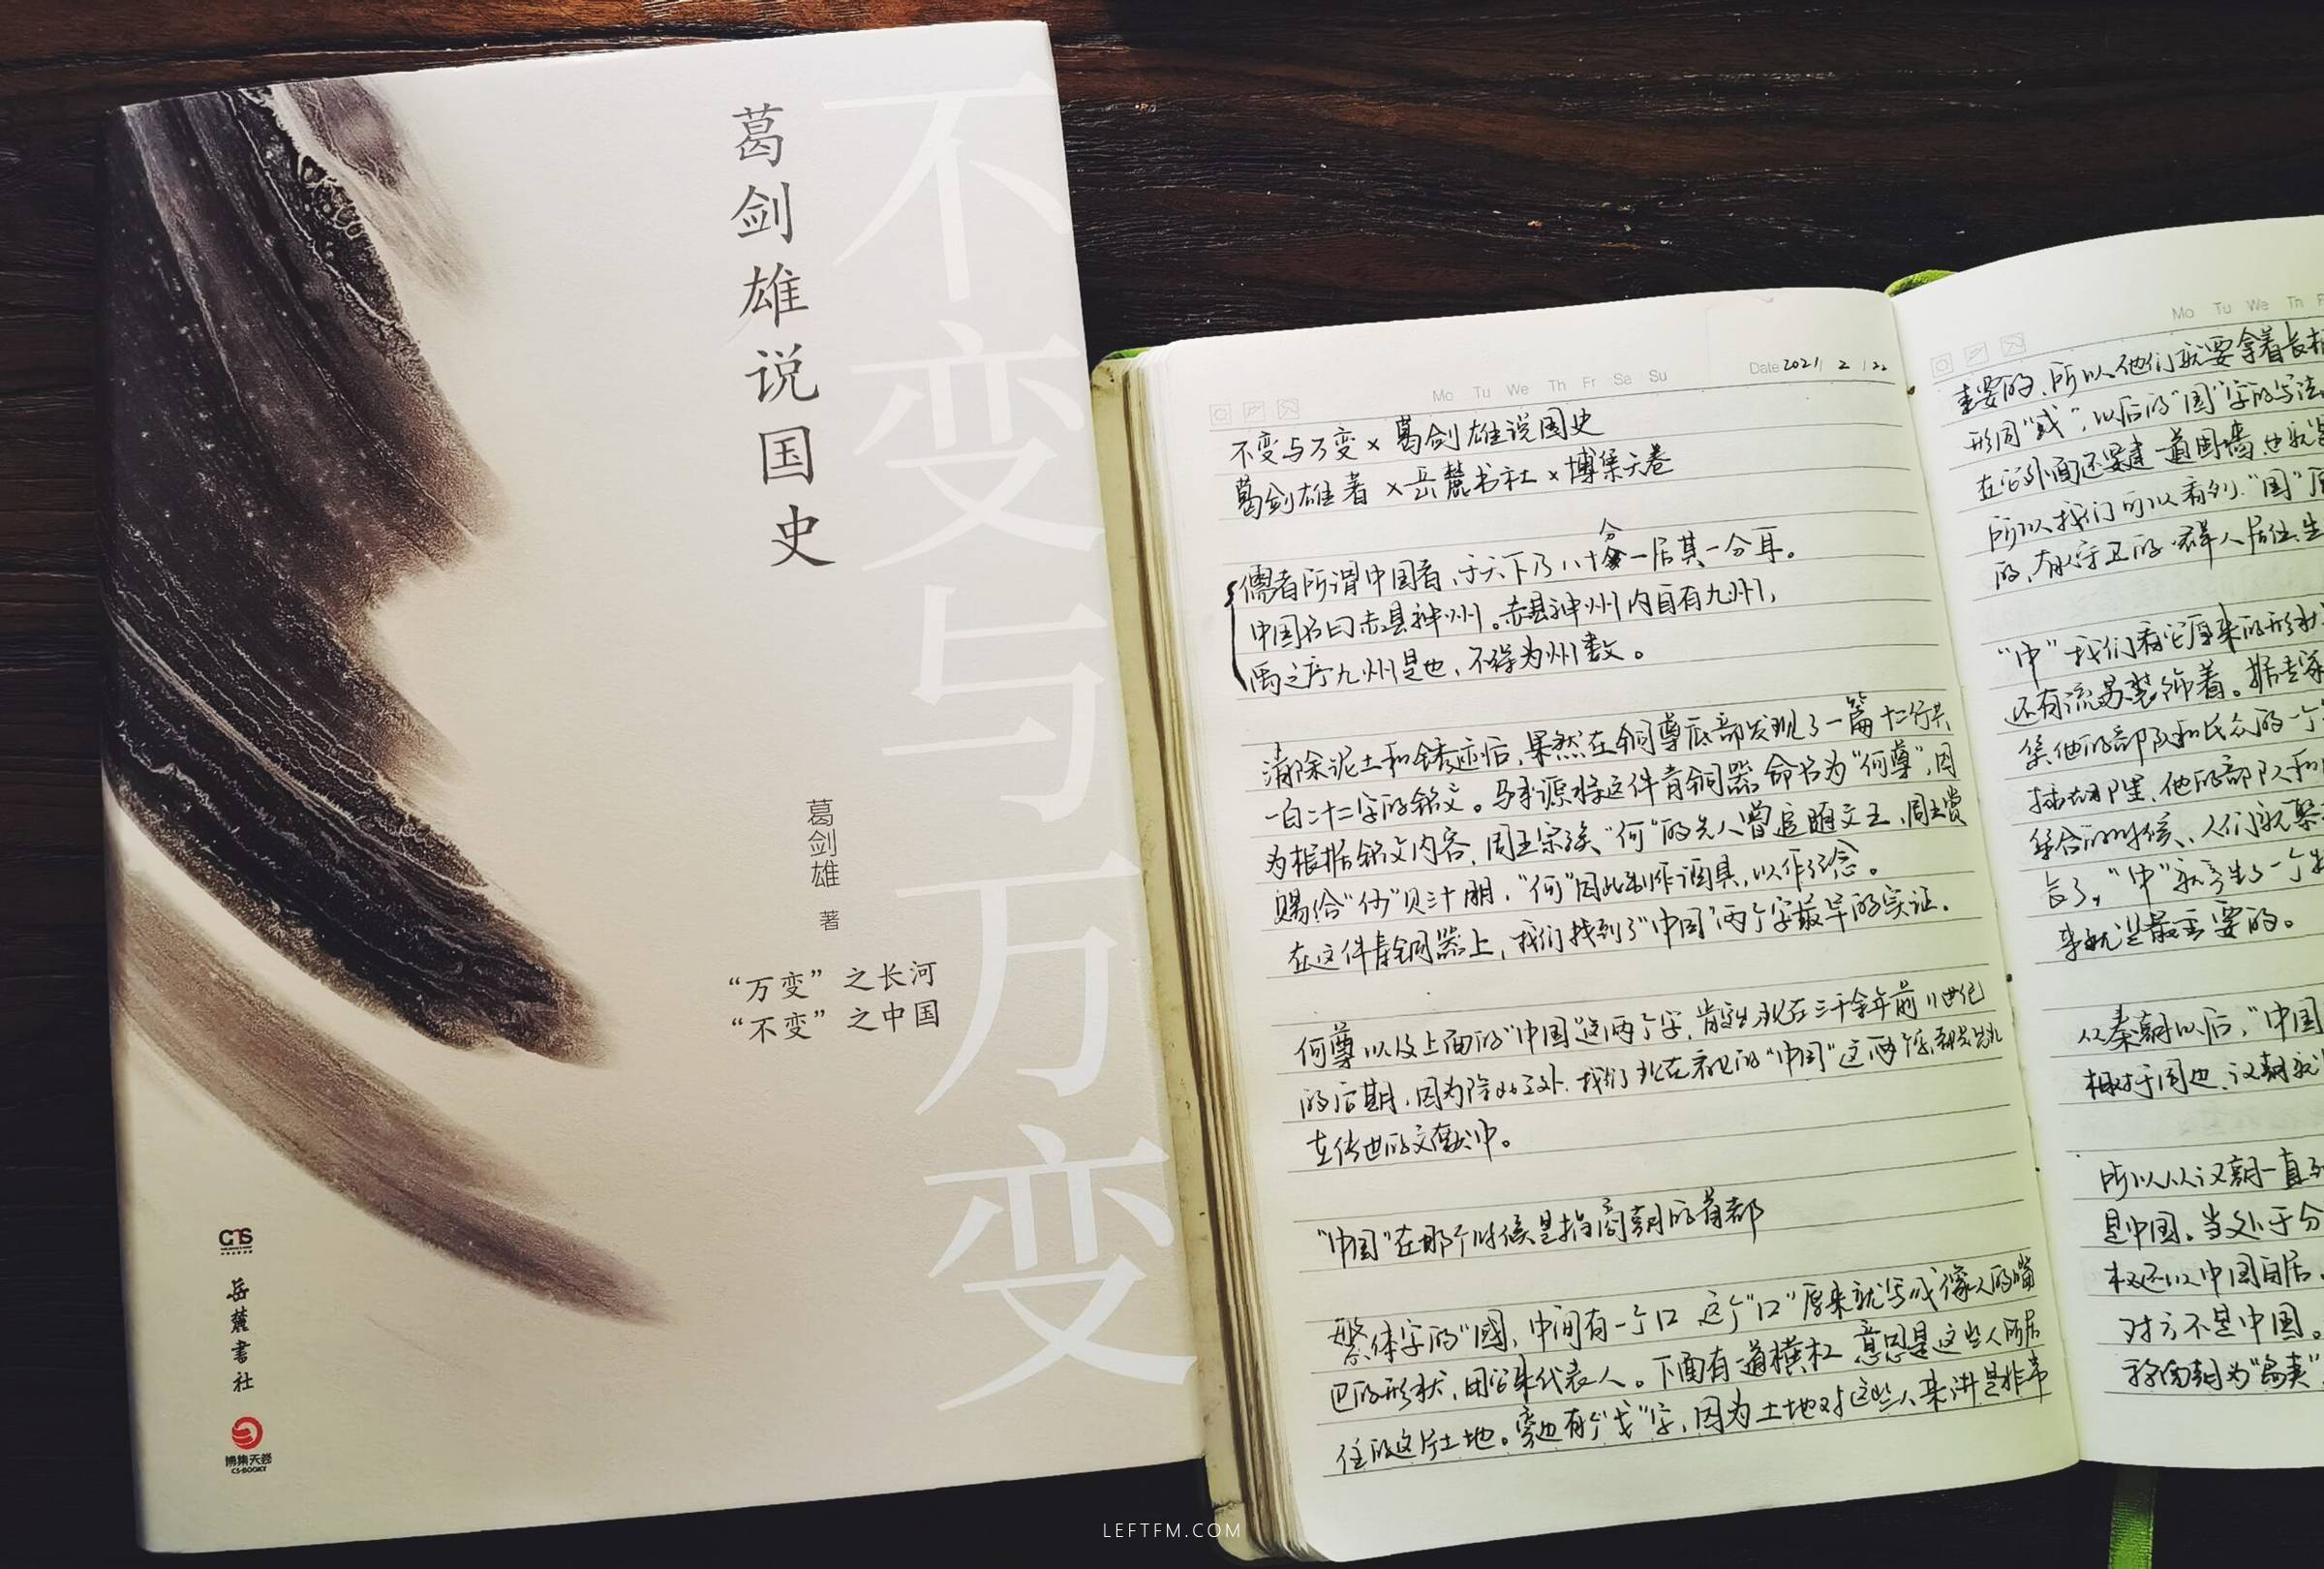 不变与万变
葛剑雄说国史
葛剑雄 著
“万变”之长河
“不变”之中国
CTS
岳麓書社
博集天卷
CS-BOOKY
Mo Tu We Th Fr Sa Su
Date 2021 2 22
不变与万变×葛剑雄说国史
葛剑雄著×岳麓书社×博集天卷
分
儒者所谓中国者,于天下乃八十一居其一分耳。
中国名曰赤县神州。赤县神州内自有九州,
禹之序九州是也,不得为州数。
清除泥土和锈迹后,果然在铜尊底部发现了一篇十二行共
一百二十二字的铭文。马承源将这件青铜器命名为“何尊”,因
为根据铭文内容,周王宗族“何”的先人曾追随文王,周王赏
赐给“何”贝三十朋,“何”因此制作酒具,以作纪念。
在这件青铜器上,我们找到了“中国”两个字最早的实证。
何尊以及上面的“中国”这两个字,肯定出现在三千余年前11世纪
的后期,因为除此之外,我们现在看见的“中国”这两个字都是出现
在传世的文献中。
“中国”在那个时候是指商朝的首都
繁体字的“國,中间有一个口 这个“口”原来就写成像人的嘴
巴的形状,用它来代表人。下面有一道横杠 意思是这些人所居
住的这片土地。旁边有个“戈”字,因为土地对这些人来讲是非常
Mo Tu We Th
重要的,所以他们就要拿着长
形同“或”,以后的“国”字的写法
在它外面还要建一道围墙,也就
所以我们可以看到,“国”
的,有人守卫的,群人居住生
“中”我们看它原来的形状
还有流苏装饰着。据专家
集他的部队和民众的一个
插在那里,他的部队和
集合的时候,人们就聚
长了,“中”就产生了一个
来就是最主要的。
从秦朝以后,“中国
相对于周边,汉朝就
所以从汉朝一直到
是中国。当处于分
权还以中国自居
对方不是中国。
称南朝为“岛夷”
LEFTFM.COM